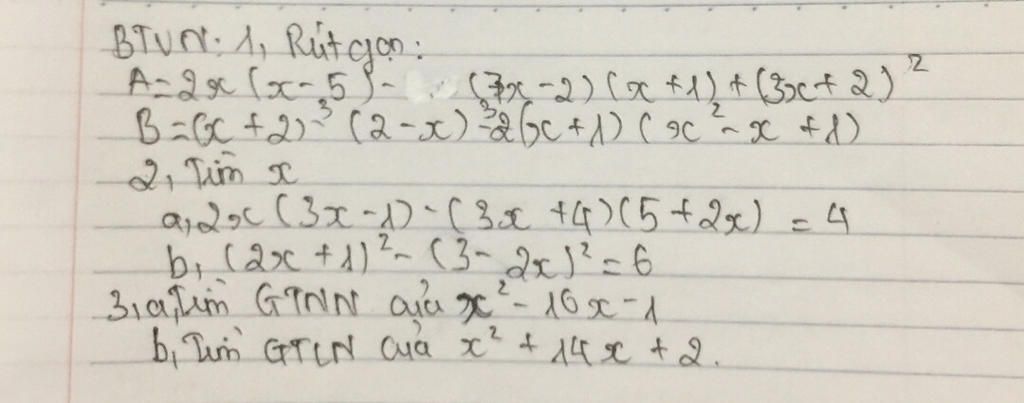 BTVN: 1, Rút gọn:
A = 2x(x - 5) - (7x - 2)(x + 1) + (3x + 2)²
B = (x + 2)³ - (2 - x)³ - 2(x + 1)(x² - x + 1)
2, Tìm x
a, 2x(3x - 1) - (3x + 4)(5 + 2x) = 4
b, (2x + 1)² - (3 - 2x)² = 6
3, a, Tìm GTNN của x² - 16x - 1
b, Tìm GTLN của x² + 14x + 2.